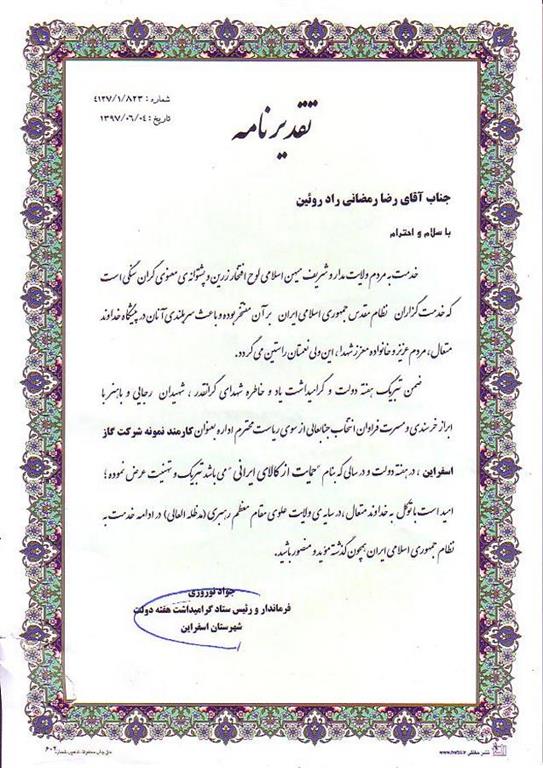 شماره : ۴۱۲۷/۱/۸۲۳
تاریخ : ۱۳۹۷/۰۶/۰۴
تقدیرنامه
جناب آقای رضا رمضانی راد روئین
با سلام و احترام
خدمت به مردم ولایت مدار و شریف میهن اسلامی لوح افتخار زرین و پشتوانه‌ی معنوی گران سنگی است
که خدمت گزاران نظام مقدس جمهوری اسلامی ایران بر آن مفتخر بوده و باعث سربلندی آنان در پیشگاه خداوند
متعال ، مردم عزیز و خانواده معزز شهدا ، این ولی نعمتان راستین می گردد.
ضمن تبریک هفته دولت و گرامیداشت یاد و خاطره شهدای گرانقدر ، شهیدان رجایی و باهنر با
ابراز خرسندی و مسرت فراوان انتخاب جنابعالی از سوی ریاست محترم اداره بعنوان کارمند نمونه شرکت گاز
اسفراین ، در هفته دولت و در سالی که بنام "حمایت از کالای ایرانی" می باشد تبریک و تهنیت عرض نموده ؛
امید است با توکل به خداوند متعال ، در سایه ی ولایت علوی مقام معظم رهبری (مدظله العالی) در ادامه خدمت به
نظام جمهوری اسلامی ایران همچون گذشته مؤید و منصور باشید.
جواد نوروزی
فرماندار و رئیس ستاد گرامیداشت هفته دولت
شهرستان اسفراین
نشر حافظی www.hafzi.ir